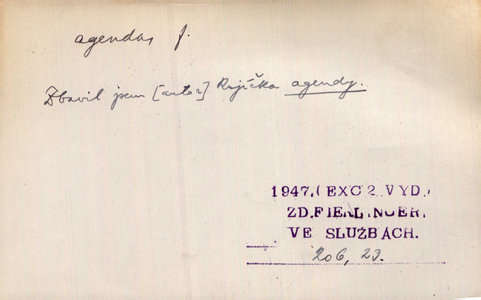 agenda, f.
Zbavil jsem [autor] Rajíčka agendy.
1947. (EXC 2. VYD.)
ZD. FIERLINGER,
VE SLUŽBÁCH.
206, 23.